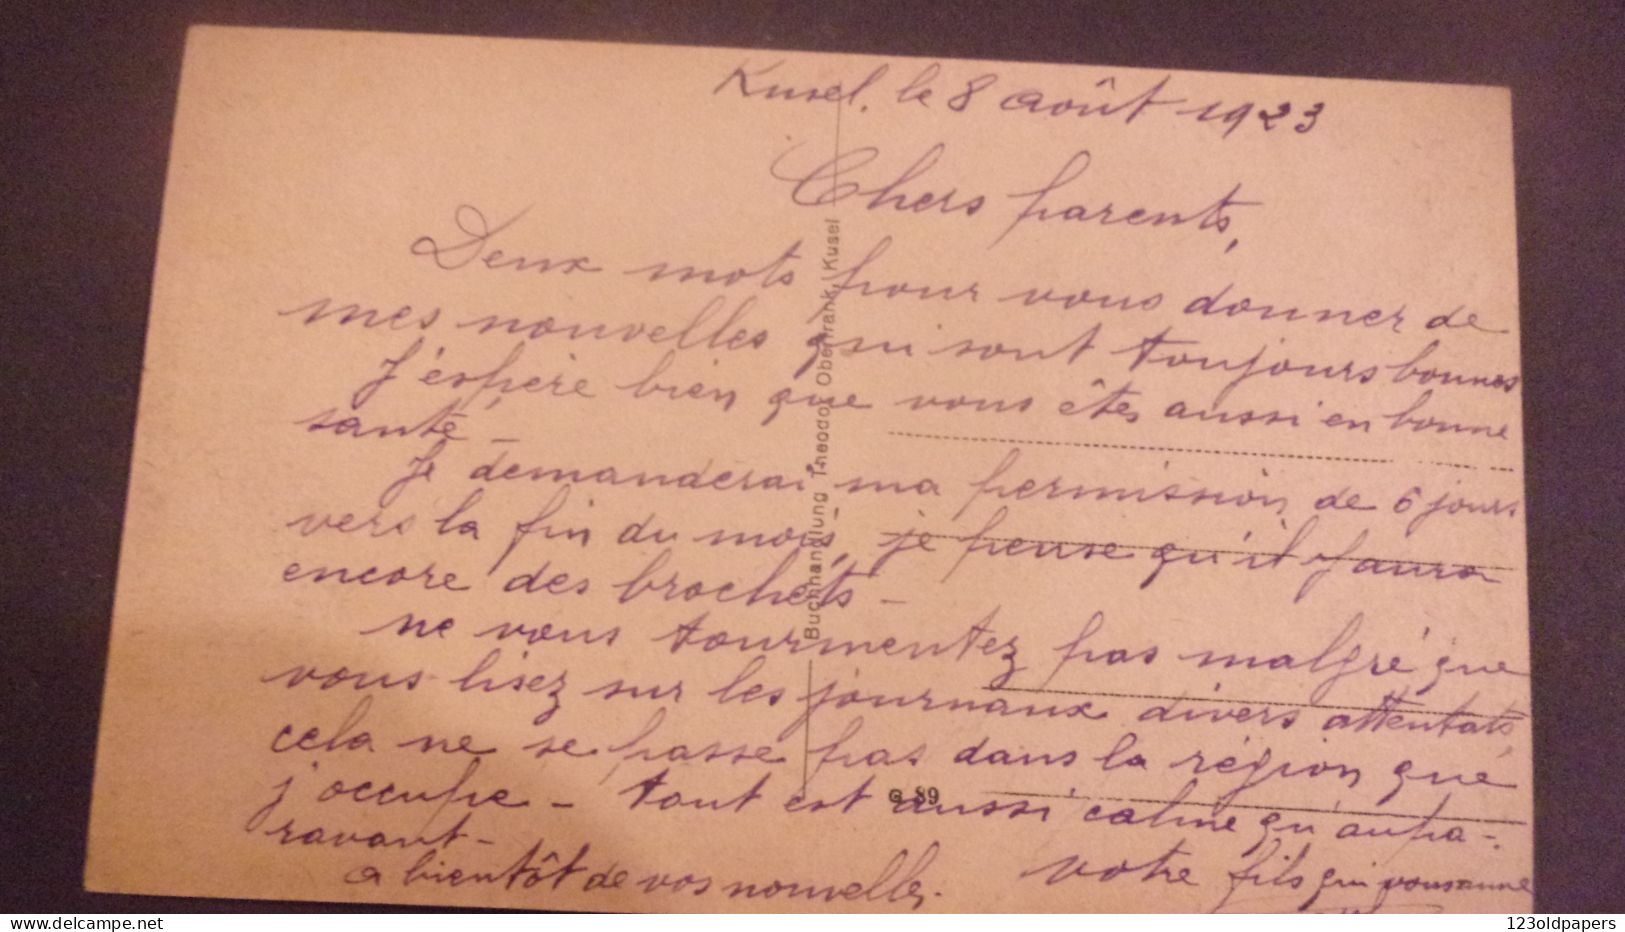 Kusel, le 8 août 1923
Chers parents,
Deux mots pour vous donner de
mes nouvelles qui sont toujours bonnes
J'éspère bien que vous êtes aussi en bonne
santé -
Je demanderai ma permission de 6 jours
vers la fin du mois, je pense qu'il y aura
encore des brochets -
ne vous tourmentez pas malgré que
vous lisez sur les journaux divers attentats,
cela ne se passe pas dans la région que
j'occupe - tout est aussi calme qu'aupa-
ravant -
a bientôt de vos nouvelles.
votre fils qui vous aime
Buchhandlung Theodor Oberfrank, Kusel
G 89
123oldpapers